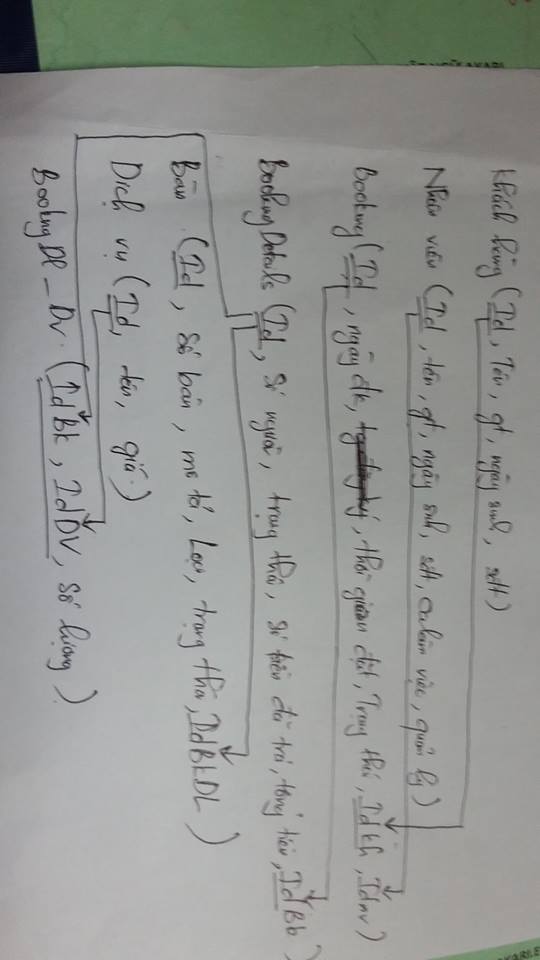 Khách hàng (Id, Tên, gt, ngày sinh, sđt)
Nhân viên (Id, tên, gt, ngày sinh, sđt, ca làm việc, quản lý)
Booking (Id, ngày đk, thời gian đặt, Trạng thái, IdKh, Idnv)
BookingDetails (Id, Số người, trạng thái, Số tiền đã trả, tổng tiền, IdBb)
Bàn (Id, Số bàn, mô tả, Loại, trạng thái, IdBkDL)
Dịch vụ (Id, tên, giá)
BookingDl_Dv (IdBk, IdDV, Số lượng)